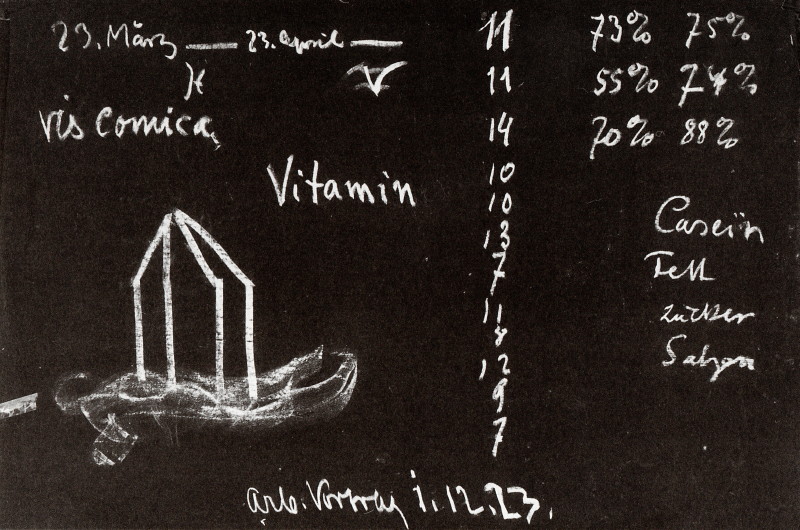 23. März — 23. April —
♓ ♈
vis comica
Vitamin
11
11
14
10
10
13
7
11
8
12
9
7
73% 75%
55% 74%
70% 88%
Caseïn
Fett
Zucker
Salzen
arb. Vortrag 1.12.23.